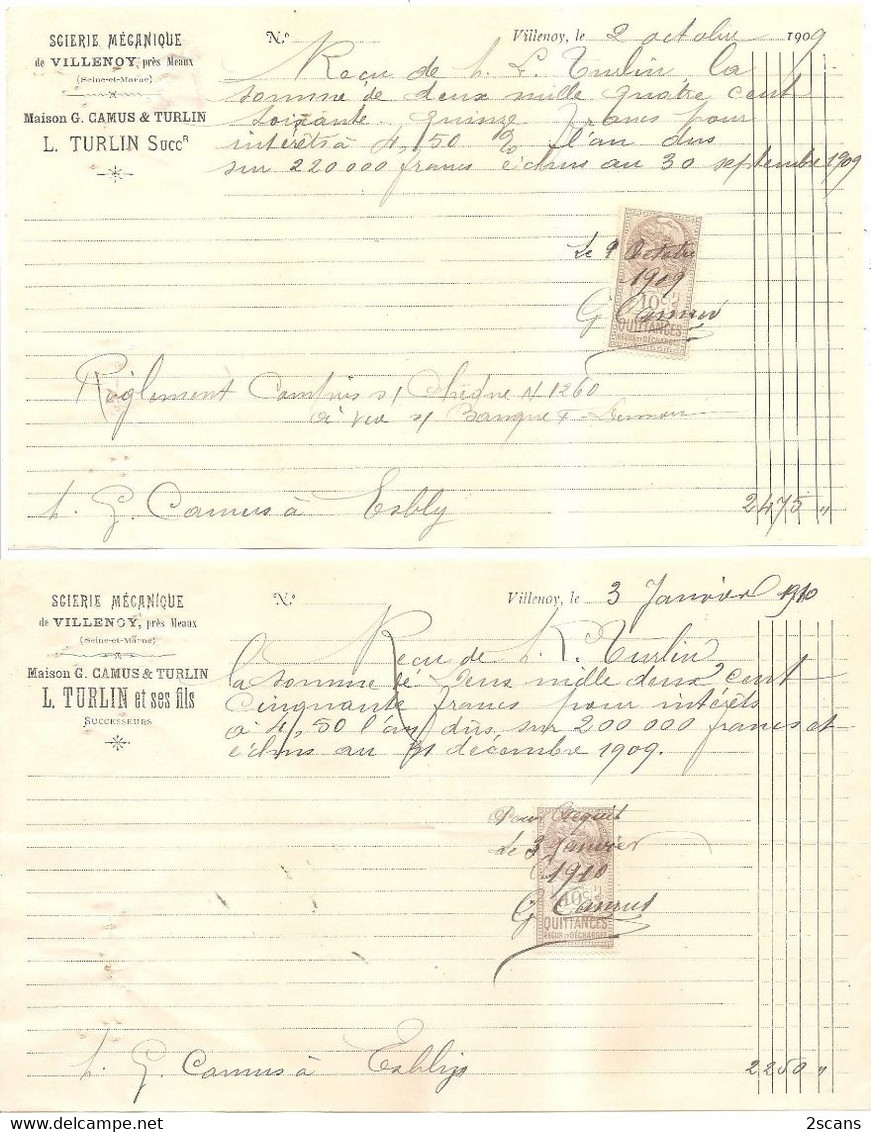 SCIERIE MÉCANIQUE
de VILLENOY, près Meaux
(Seine-et-Marne)
Maison G. CAMUS & TURLIN
L. TURLIN Succᴿ
N° Villenoy, le 2 octobre 1909
Reçu de M. L. Turlin, la
somme de deux mille quatre cent
soixante quinze francs pour
intérêts à 4,50 % l'an dus
sur 220 000 francs échus au 30 septembre 1909
Le 9 Octobre
1909
10c
G Camus
QUITTANCES
REÇUS ET DÉCHARGES
Règlement Comtris s/ Chèque N 1260
à vue s/ Banque
M. G. Camus à Esbly 2475 "
SCIERIE MÉCANIQUE
de VILLENOY, près Meaux
(Seine-et-Marne)
Maison G. CAMUS & TURLIN
L. TURLIN et ses fils
SUCCESSEURS
N° Villenoy, le 3 Janvier 1910
Reçu de M. L. Turlin
la somme de deux mille deux cent
Cinquante francs pour intérêts
à 4,50 l'an dûs sur 200 000 francs et
échus au 31 décembre 1909.
Pour Acquit
Le 3 Janvier
1910
10c
G Camus
QUITTANCES
REÇUS ET DÉCHARGES
M. G. Camus à Esbly 2250 "
2scans